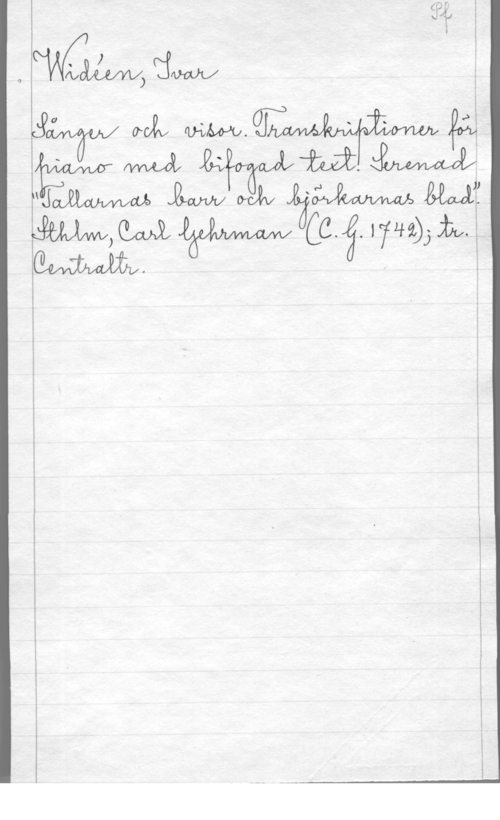 Pf
Widéen, Ivar
Sånger och visor. Transkriptioner för
piano med bifogad text. Serenad
"Tallarnas barr och björkarnas blad".
Sthlm, Carl Gehrman (C. G. 1742); tr.
Centraltr.